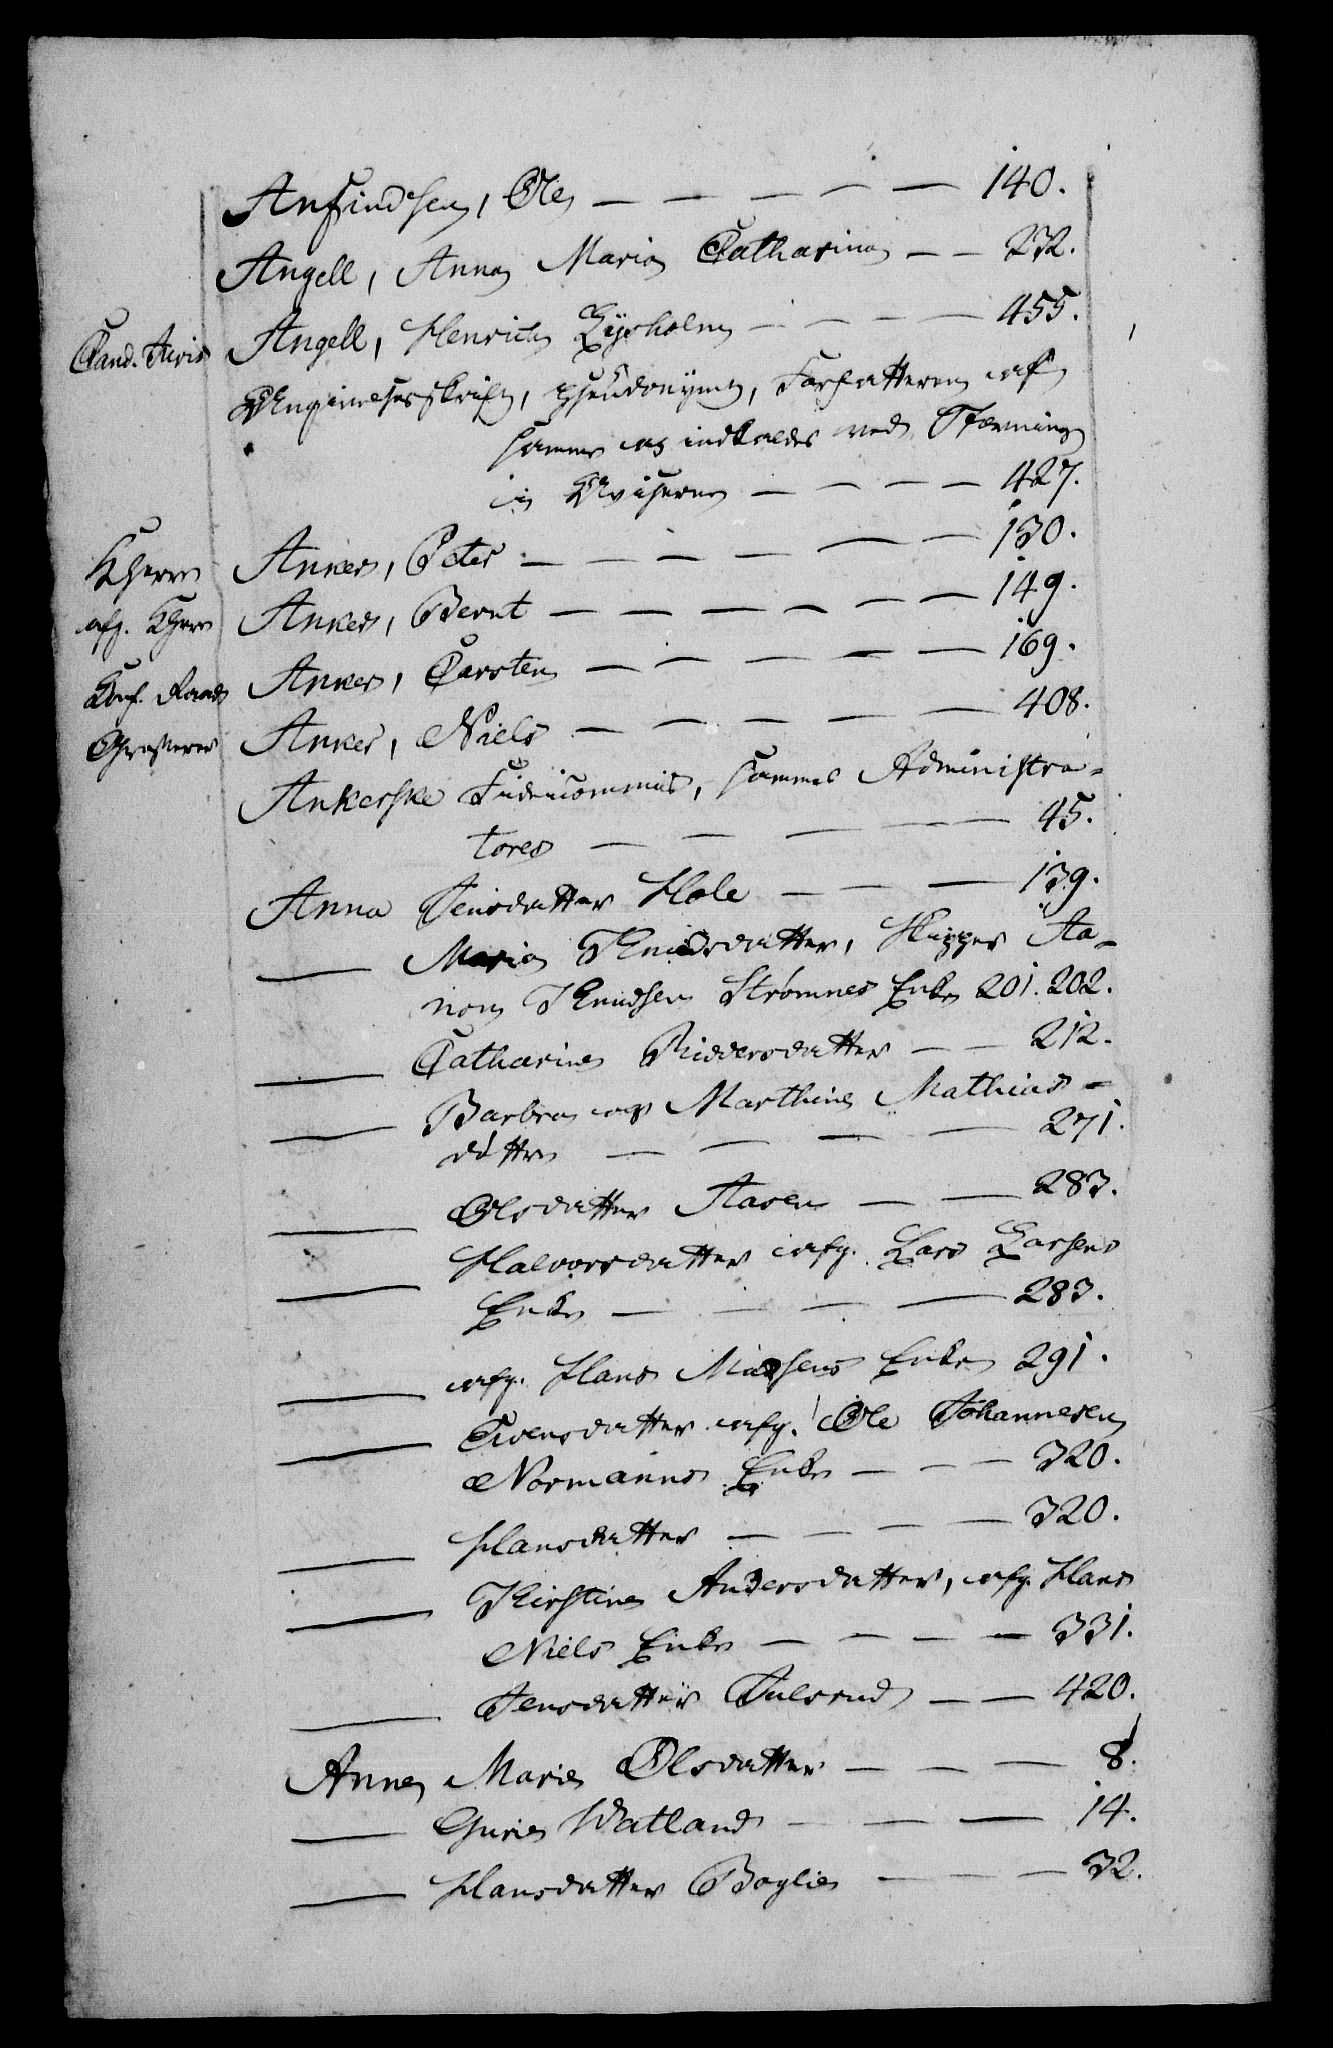 Anfindsen, Ole — — — — — 140.
Angell, Anna Maria Catharina — — 232.
Cand. Juris Angell, Henrich Lysholm — — — 455.
Angivelsesskrift, pseudonymt, Forfatteren af
samme og indkaldes ved Stævning
i Aviserne — — — — 427.
KHerre Anker, Peter — — — — — 130.
afg. KHerre Anker, Bernt — — — — — — 149.
Conf. Raad Anker, Carsten — — — — — 169.
Grosserer Anker, Niels — — — — — 408.
Ankerske Fideicommis, sammes Administra-
tores — — — — — 45.
Anna Jensdatter Hole — — — 139.
— Maria Knudsdatter, Skipper Aa-
non Knudsen Strømnes Enke 201. 202.
— Catharine Riddersdatter — — 212.
— Barbra og Marthine Mathias-
døttre — — — — 271.
— Olsdatter Aasen — — 283.
— Halvorsdatter afg. Lars Larsens
Enke — — — — 283.
— afg. Hans Madsens Enke 291.
— Evensdatter afg. Ole Johannesen
Normanns Enke — — — 320.
— Hansdatter — — — — 320.
— Kirstine Andersdatter, afg. Hans
Niels Enke — — — — 331.
— Jensdatter Julsrud — — 420.
Anne Marie Olsdatter — — — 8.
— Gurie Watland — — — 14.
— Hansdatter Boglie — — — 32.